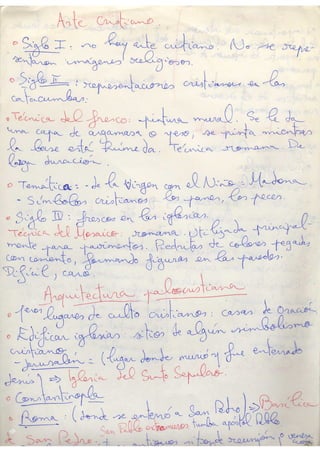 Arte cristiano.
• Siglo I: no hay arte cristiano. No se repre-
sentaron imágenes religiosos.
• Siglo II: representaciones cristianas en las
catacumbas.
• Técnica del fresco: pintura mural. Se le da
una capa de argamasa o yeso, se pinta mientras
la base está húmeda. Técnica romana. De
larga duración.
• Temática: - de la Virgen con el Niño: Madona
- Símbolos cristianos: los panes, los peces.
• Siglo IV: frescos en las iglesias.
Técnica del Mosaico: romana. Utilizada principal-
mente para pavimentos. Piedritas de colores pegadas
con cemento, formando figuras en las paredes.
Difícil, caro
Arquitectura paleocristiana
• 1eros lugares de culto cristianos: casas de oración
• Edificar iglesias sitios de algún simbolismo
cristiano.
- Jerusalén = (lugar donde murió y fue enterrado
Jesús) ⇒ Iglesia del Santo Sepulcro.
• Constantinopla
• Roma: (donde se enterró a San Pedro) ⇒ Basílica
San Pablo extramuros tumba apóstol Pablo
de San Pedro.